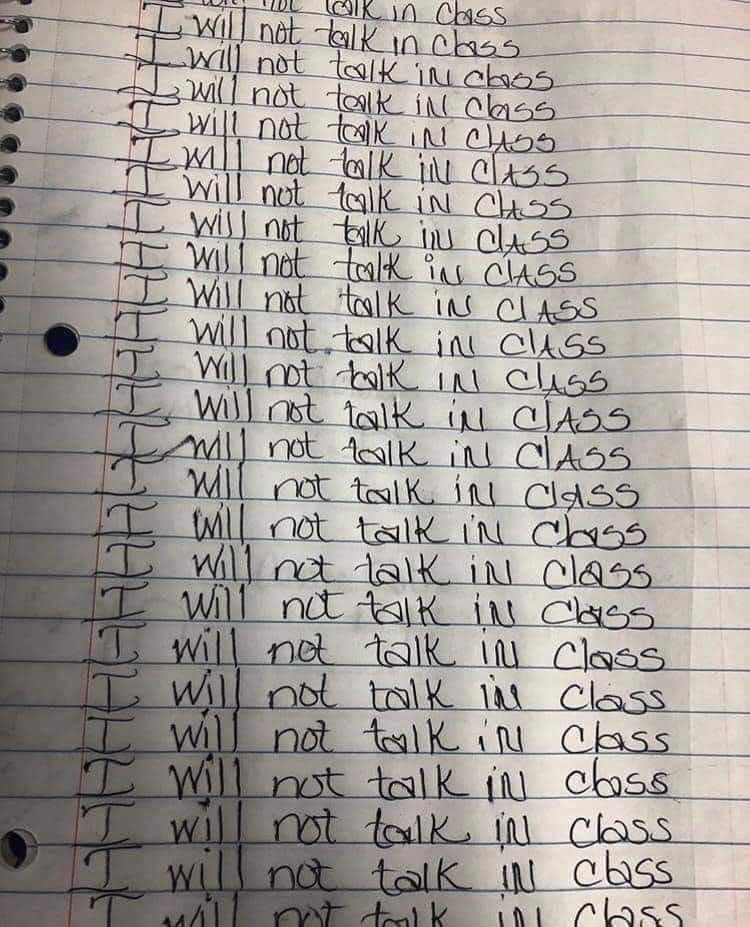 not talk in Class
I will not talk in Class
I will not talk iN Class
I will not talk iN Class
I will not talk iN ClASS
I will not talk iN ClASS
I will not talk iN ClASS
I will not talk iN ClASS
I will not talk iN ClASS
I will not talk iN ClASS
I will not talk iN ClASS
I will not talk iN ClASS
I will not talk iN ClASS
I will not talk iN ClASS
I will not talk iN ClaSS
I will not talk iN Class
I will not talk iN Class
I will not talk iN Class
I will not talk iN Class
I will not talk iN Class
I will not talk iN Class
I will not talk iN Class
I will not talk iN Class
I will not talk IN Class
I will not talk iN Class